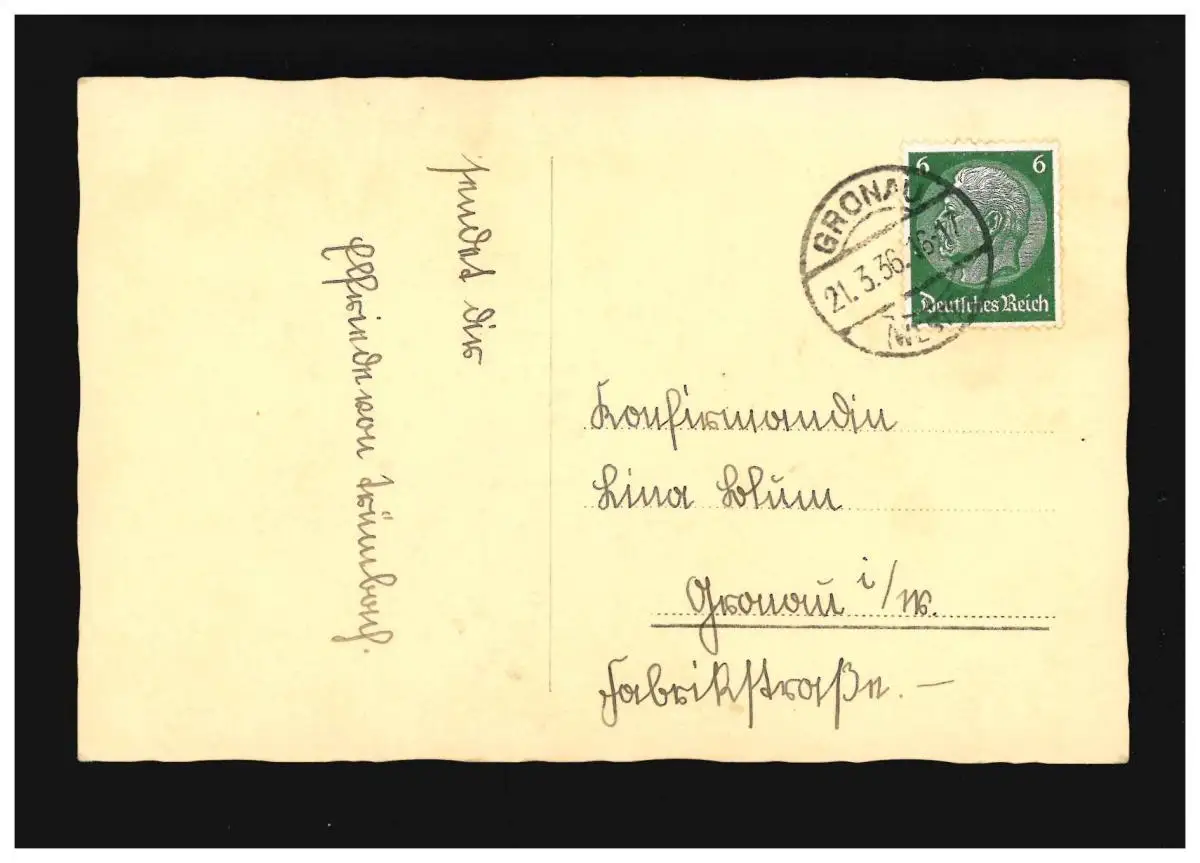 sendet dir
Elfriede von Trümbach.
6 6
Deutsches Reich
GRONAU
21.3.36.16-17
Konfirmandin
Lina Blum
Gronau i/W.
Fabrikstraße. —